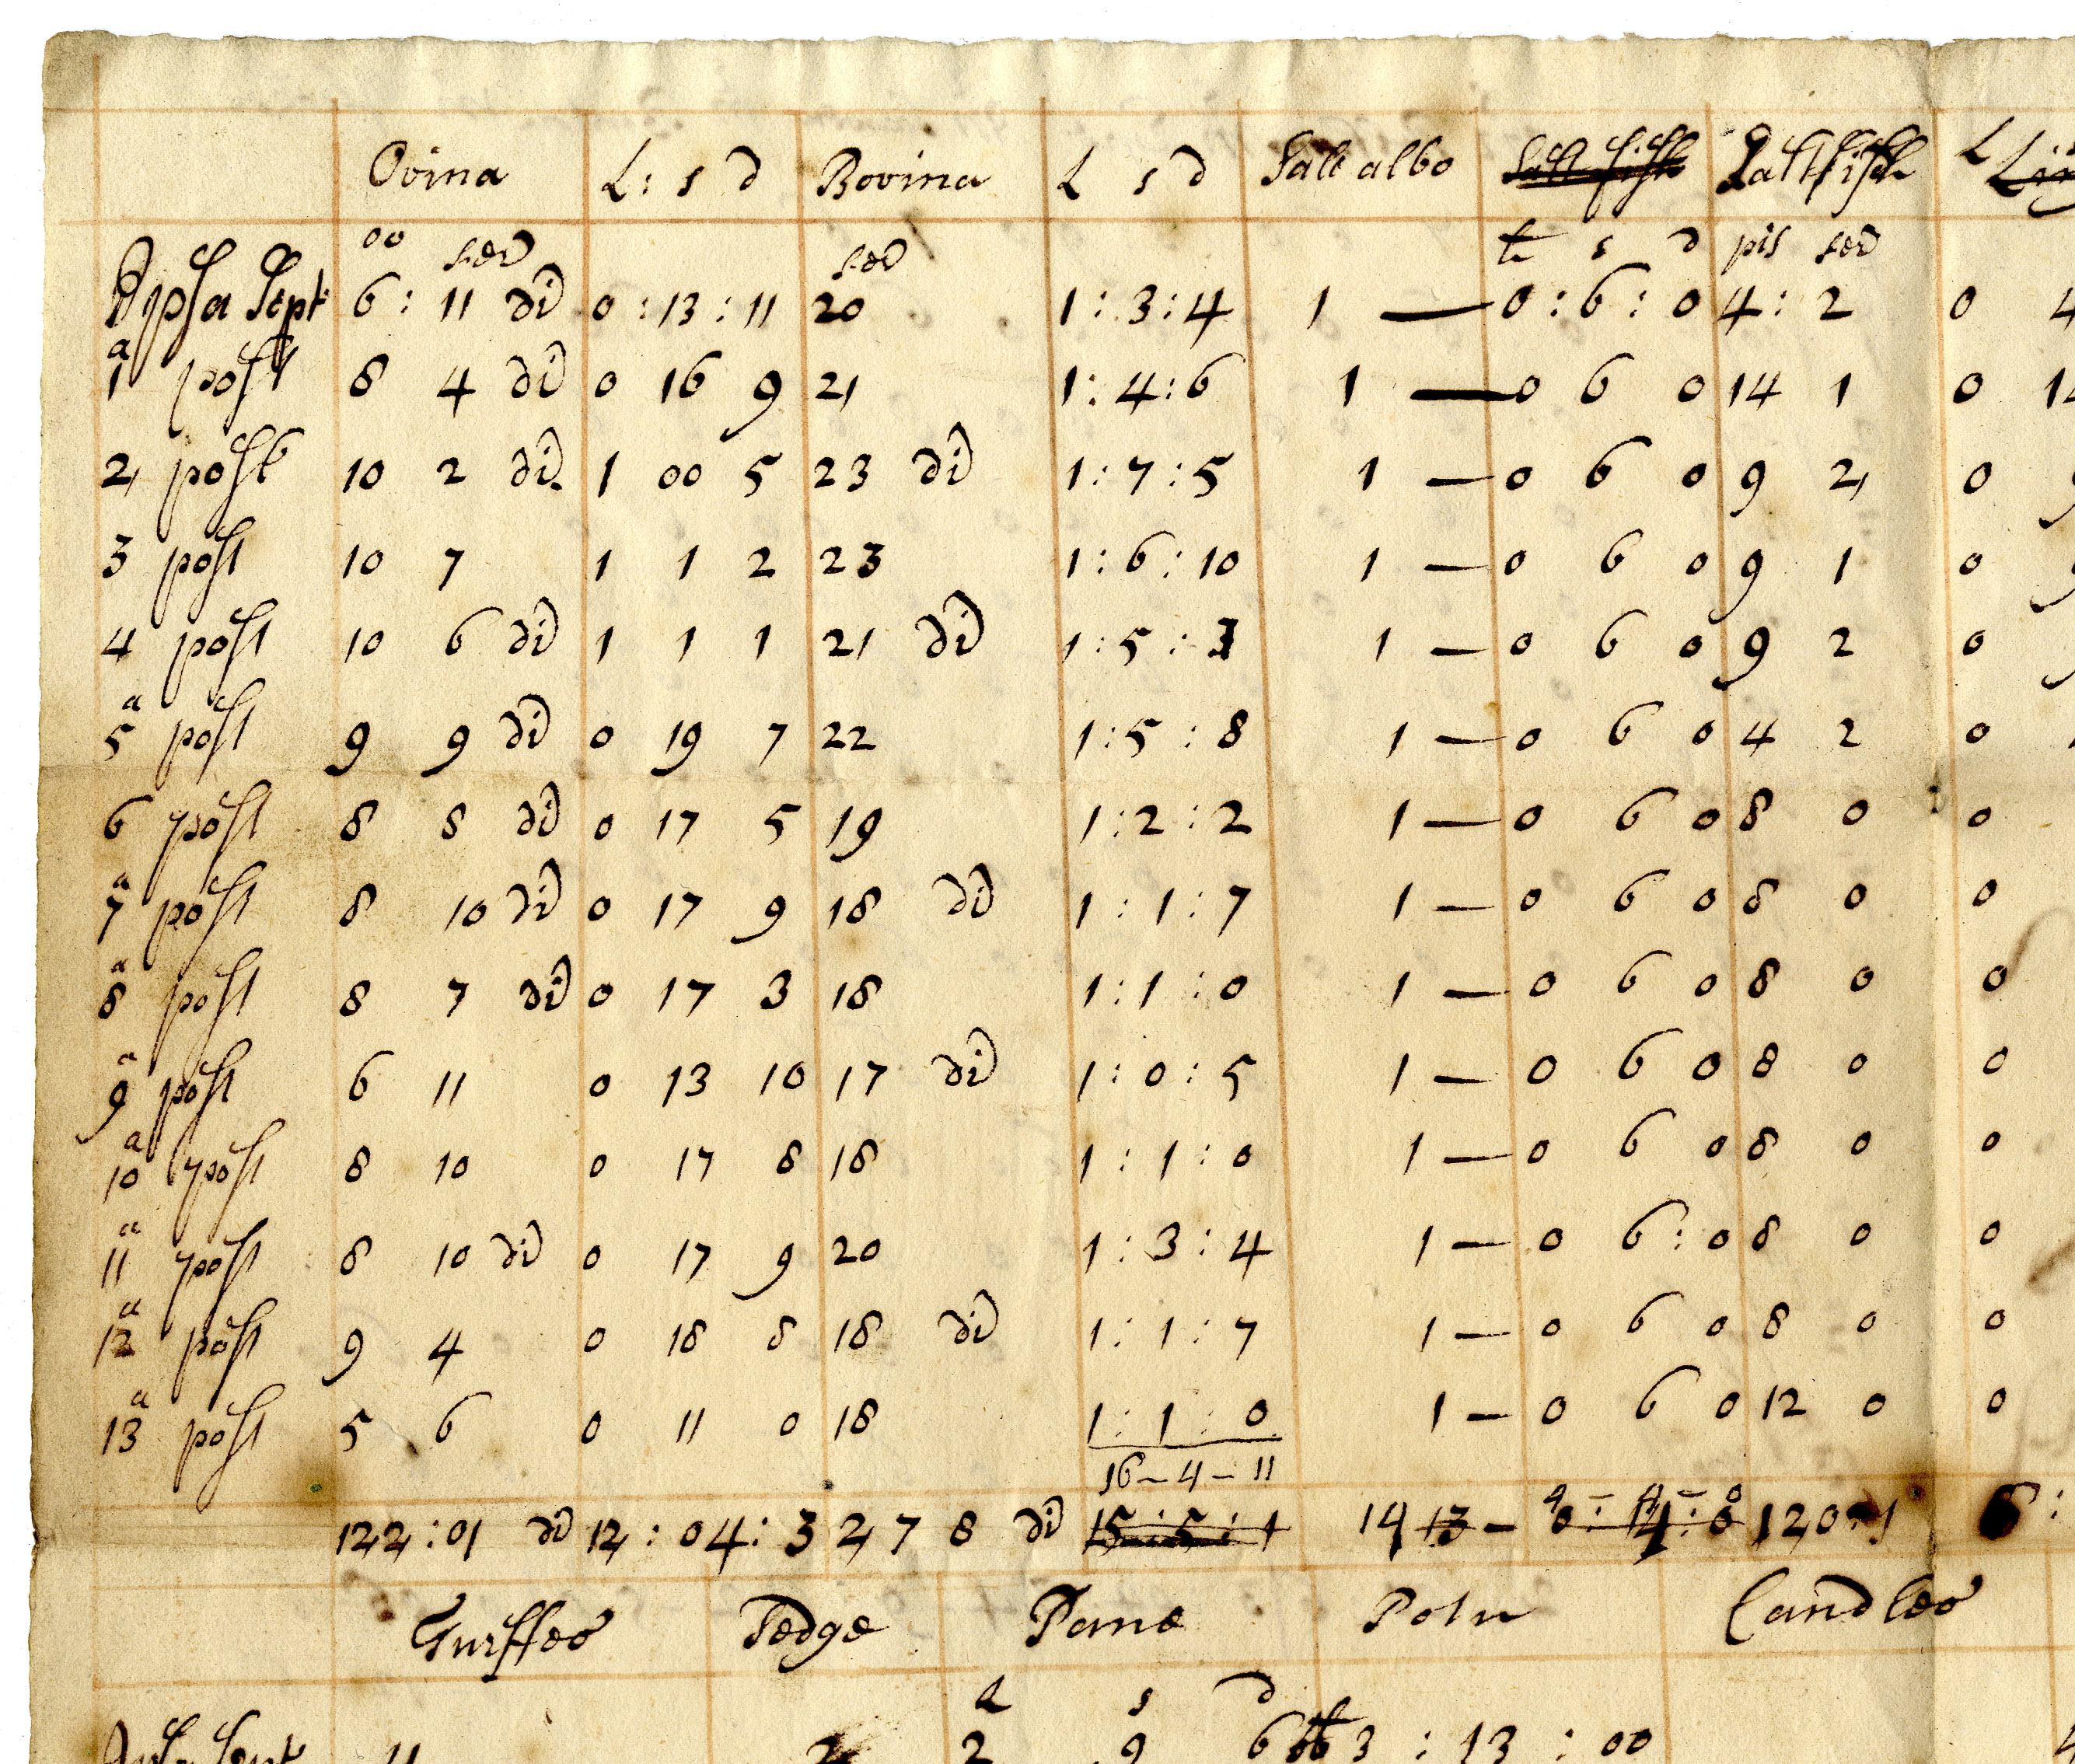 Ovina L: s d Bovina L s d Salt albo Salt fish Saltfish L Lin
oo ster ster L s d pis ster
Ipsa Sept: 6 : 11 di 0 : 13 : 11 20 1 : 3 : 4 1 — 0 : 6 : 0 4 : 2 0 4
1a post 8 4 di 0 16 9 21 1 : 4 : 6 1 — 0 6 0 14 1 0 14
2 post 10 2 di 1 00 5 23 di 1 : 7 : 5 1 — 0 6 0 9 2 0 9
3 post 10 7 1 1 2 23 1 : 6 : 10 1 — 0 6 0 9 1 0 9
4 post 10 6 di 1 1 1 21 di 1 : 5 : 1 — 0 6 0 9 2 0
5a post 9 9 di 0 19 7 22 1 : 5 : 8 1 — 0 6 0 4 2 0
6 post 8 8 di 0 17 5 19 1 : 2 : 2 1 — 0 6 0 8 0 0
7a post 8 10 di 0 17 9 18 di 1 : 1 : 7 1 — 0 6 0 8 0 0
8a post 8 7 di 0 17 3 18 1 : 1 : 0 1 — 0 6 0 8 0 0
9a post 6 11 0 13 10 17 di 1 : 0 : 5 1 — 0 6 0 8 0 0
10a post 8 10 0 17 8 18 1 : 1 : 0 1 — 0 6 0 8 0 0
11a post 8 10 di 0 17 9 20 1 : 3 : 4 1 — 0 6 : 0 8 0 0
12a post 9 4 0 18 8 18 di 1 : 1 : 7 1 — 0 6 0 8 0 0
13a post 5 6 0 11 0 18 1 : 1 : 0 1 — 0 6 0 12 0 0
16 – 4 – 11
122 : 01 di 12 : 04 : 3 278 di 15 : 5 : 1 14 13 – 4 – 4 – 0 120 : 1
Turffes Sedge Pane Potu Candles
L s d
Ipsa Sept 11 2 2 9 6 3 : 13 : 00 4